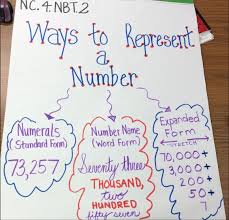 NC.4.NBT.2
Ways to Represent
a
Number
Numerals
(Standard Form)
73,257
Number Name
(Word Form)
Seventy three
THOUSAND,
two
HUNDRED
fifty seven
Expanded
Form
STRETCH
70,000+
3,000+
200+
50+
7